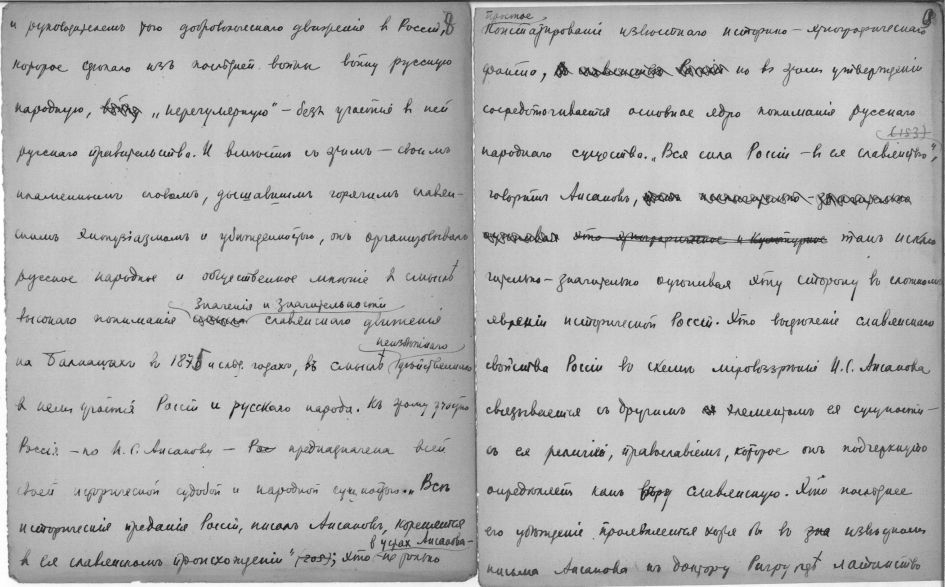 и руководителемъ того добровольческаго движенія въ Россіи, 8
которое сдѣлало изъ послѣдней войны войну русскую
народную, „нерегулярную“ – безъ участія въ ней
русскаго правительства. И вмѣстѣ съ этимъ – своимъ
пламеннымъ словомъ, дышавшимъ горячимъ славян-
скимъ энтузіазмомъ и убѣжденностью, онъ организовывалъ
русское народное и общественное мнѣніе въ смыслѣ
значенія и значительности
высокаго пониманія славянскаго движенія
неизбѣжнаго
на Балканахъ въ 1875 и слѣд. годахъ, въ смыслѣ дѣйственнаго
въ немъ участія Россіи и русскаго народа. Къ этому участію
Россія – по И. С. Аксакову – предназначена всей
своей исторической судьбой и народной сущностью. „Всѣ
историческія преданія Россіи, писалъ Аксаковъ, коренятся
въ устахъ Аксакова –
въ ея славянскомъ происхожденіи“ (205); это не только
простое
Констатированіе извѣстнаго историко – этнографическаго
факта, но въ этомъ утвержденіи
сосредотачивается основное ядро пониманія русскаго
(183)
народнаго существа. „Вся сила Россіи – въ ея славянствѣ“,
говоритъ Аксаковъ,
это этнографическое и культурное такъ исклю-
чительно – значительно оцѣнивая эту сторону въ сложномъ
явленіи исторической Россіи. Это выдѣленіе славянскаго
свойства Россіи въ схемѣ міровоззрѣнія И. С. Аксакова
связывается съ другимъ элементомъ ея сущности –
съ ея религіею, православіемъ, которое онъ подчеркнуто
опредѣляетъ какъ вѣру славянскую. Это послѣднее
его убѣжденіе проявляется хотя бы въ извѣстномъ
письмѣ Аксакова къ доктору Ригеру, гдѣ